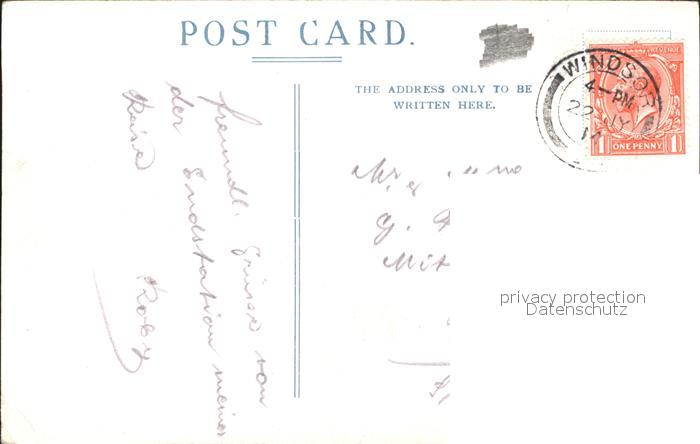 POST CARD.
THE ADDRESS ONLY TO BE
WRITTEN HERE.
WINDSOR
4-PM
22 MY
REVENUE
ONE PENNY
1 1
freundl. Grüsse von
der Endstation meiner
Reise
Roby
Mr
G.
Mit
privacy protection
Datenschutz